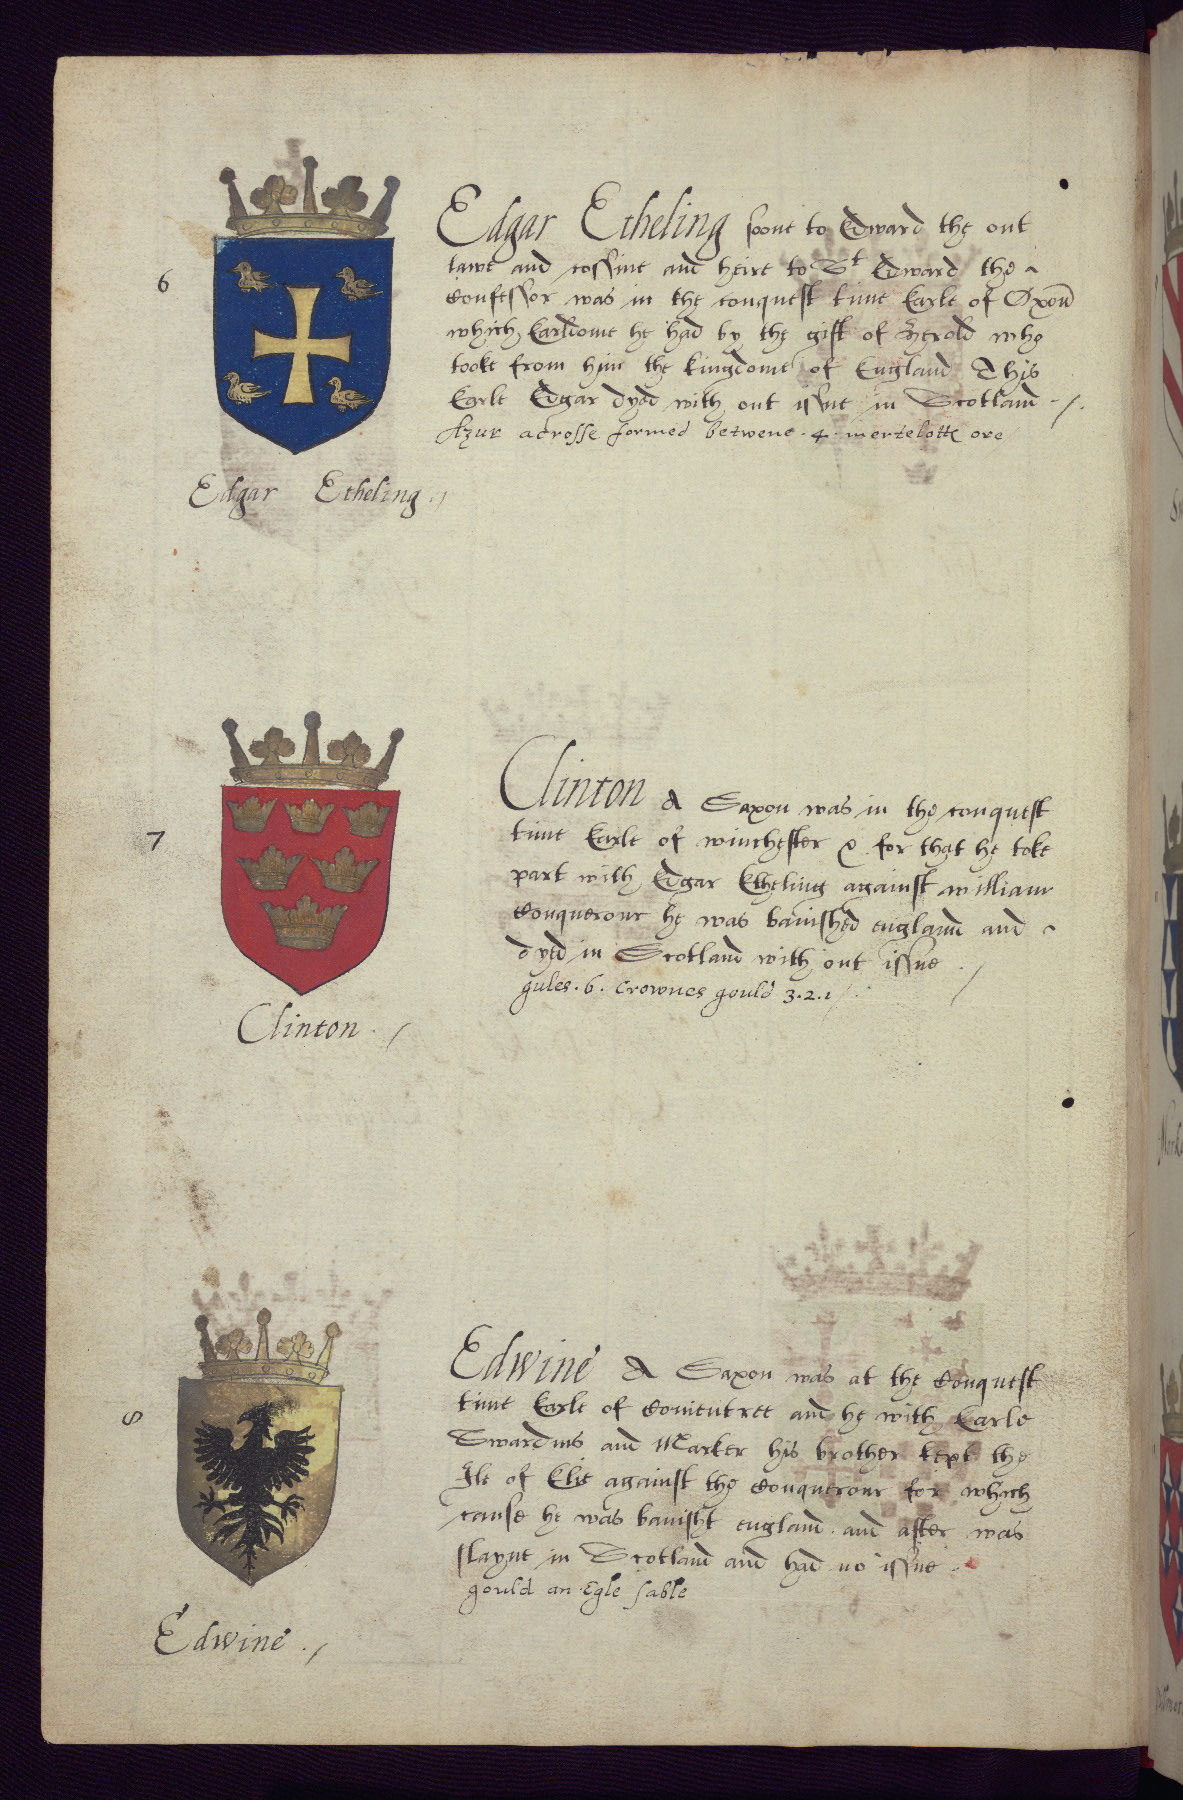 6
Edgar Etheling soone to Edward the out
lawe and cossine and heire to St Edward the
Confessor was in the conquest time Earle of Oxon
which Earldome he had by the gift of Herold who
tooke from him the kingdome of England This
Earle Edgar dyed with out issue in Scotland
Azur a crosse formed betwene .4. mertelotte ore
Edgar Etheling
7
Clinton A Saxon was in the conquest
time Earle of winchester & for that he toke
part with Edgar Etheling against william
Conquerour he was banished england and
dyed in Scotland with out issue
gules .6. Crownes gould 3.2.1
Clinton
8
Edwine A Saxon was at the Conquest
time Earle of Coventree and he with Earle
Swardus and Marker his brother kept the
Ile of Elie against the Conquerour for which
cause he was banisht england and after was
slayne in Scotland and had no issue
gould an Egle sable
Edwine